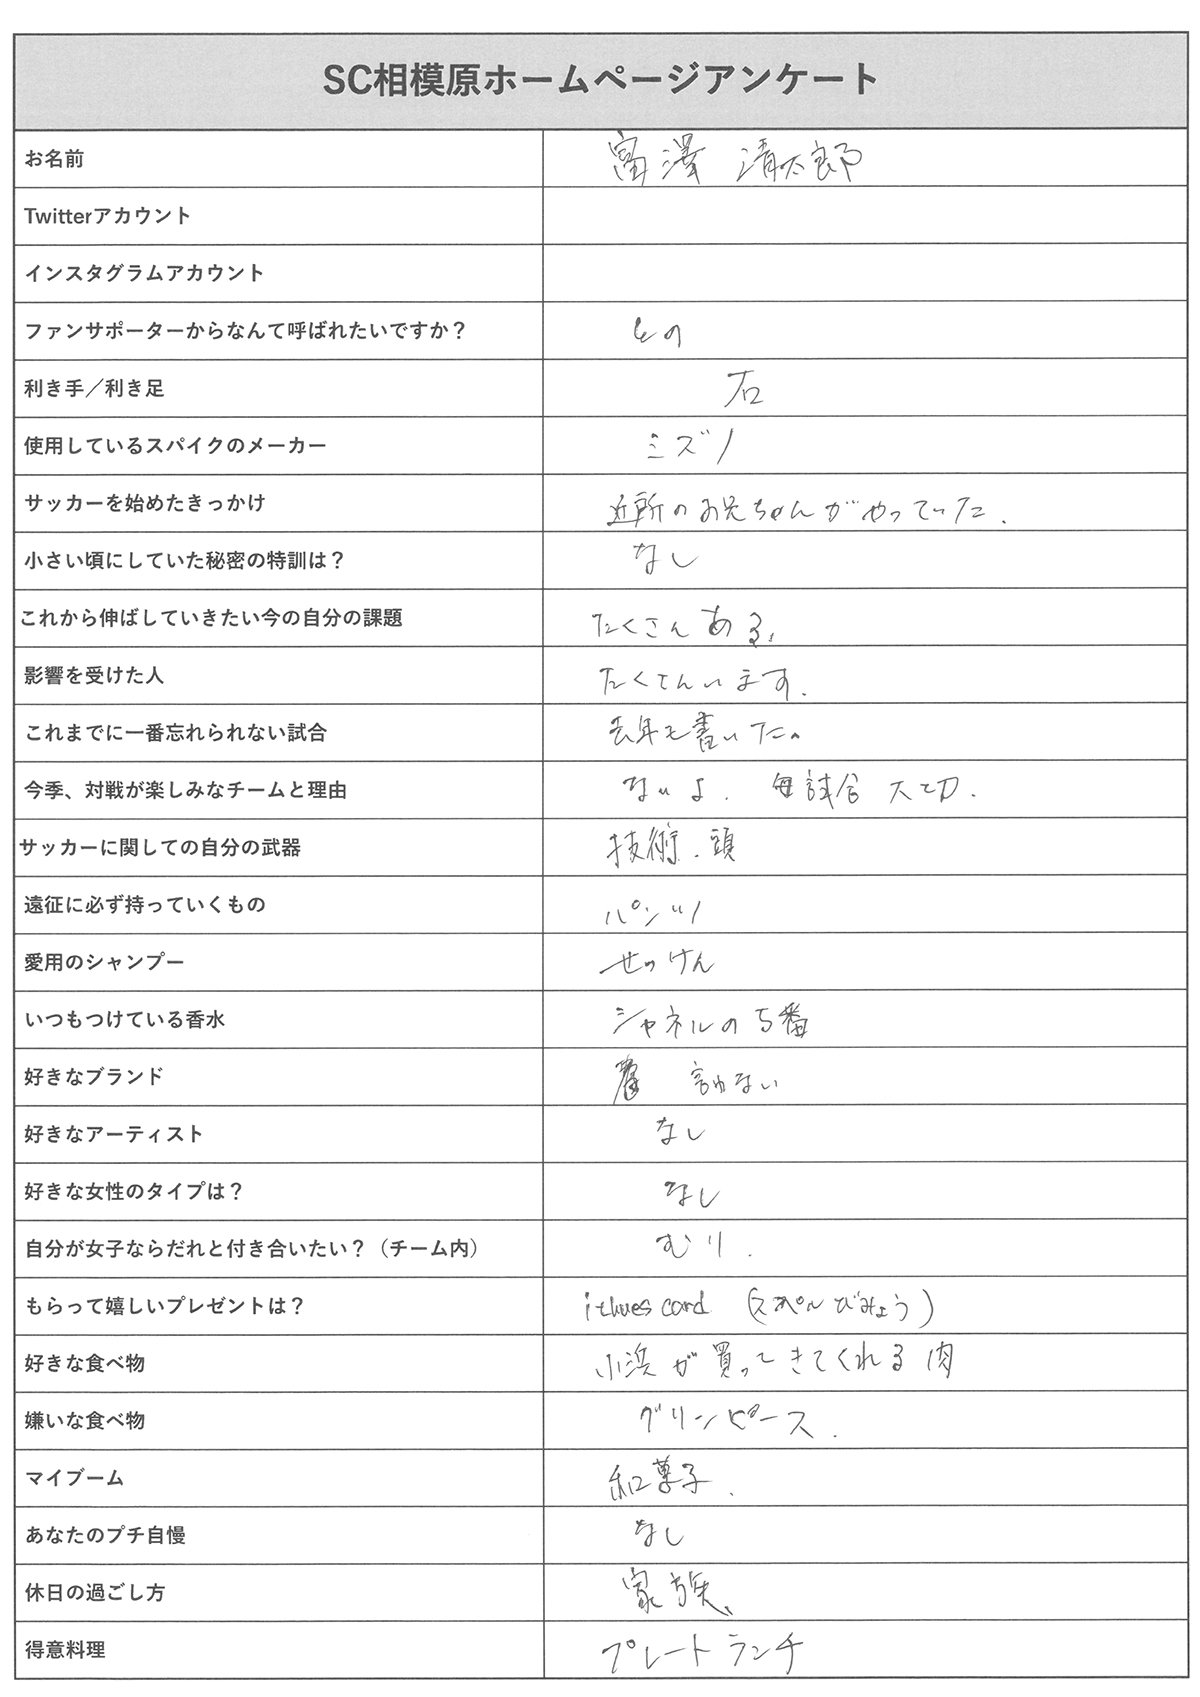 SC相模原ホームページアンケート
お名前 富澤 清太郎
Twitterアカウント
インスタグラムアカウント
ファンサポーターからなんて呼ばれたいですか？
利き手／利き足 右
使用しているスパイクのメーカー ミズノ
サッカーを始めたきっかけ 近所のお兄ちゃんがやっていた.
小さい頃にしていた秘密の特訓は？ なし
これから伸ばしていきたい今の自分の課題 たくさんある、
影響を受けた人 たくさんいます.
これまでに一番忘れられない試合 去年も書いた。
今季、対戦が楽しみなチームと理由 ないよ. 毎試合 大切.
サッカーに関しての自分の武器 技術.頭
遠征に必ず持っていくもの パンツ
愛用のシャンプー せっけん
いつもつけている香水 シャネルの5番
好きなブランド 言わない
好きなアーティスト なし
好きな女性のタイプは？ なし
自分が女子ならだれと付き合いたい？（チーム内） むり.
もらって嬉しいプレゼントは？ ithues card (スペルびみょう)
好きな食べ物 小浜が買ってきてくれる肉
嫌いな食べ物 グリンピース.
マイブーム 和菓子.
あなたのプチ自慢 なし
休日の過ごし方 家族、
得意料理 プレートランチ